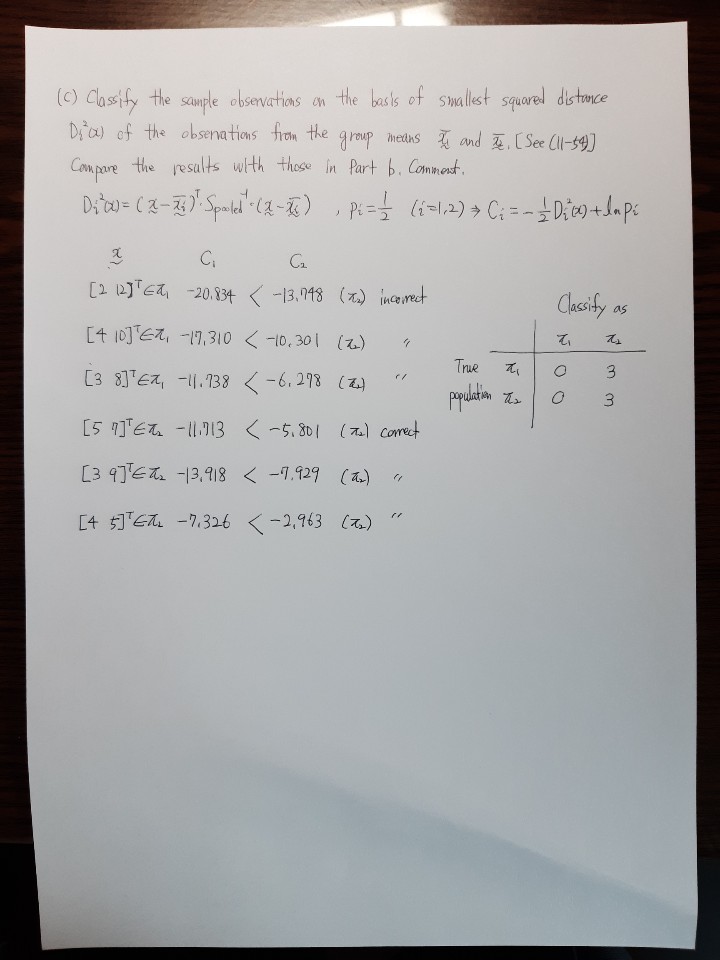 (c) Classify the sample observations on the basis of smallest squared distance
Dᵢ²(x) of the observations from the group means x̄₁ and x̄₂. [See (11-54)]
Compare the results with those in Part b. Comment.
Dᵢ²(x) = (x - x̄ᵢ)ᵀ · Spooled⁻¹ · (x - x̄ᵢ) , Pi = 1/2 (i=1,2) ⇒ Cᵢ = - 1/2 Dᵢ²(x) + ln Pi
x C₁ C₂
[2 12]ᵀ ∈ π₁ -20.834 < -13.748 (π₂) incorrect
[4 10]ᵀ ∈ π₁ -17.310 < -10.301 (π₂) "
[3 8]ᵀ ∈ π₁ -11.738 < -6.278 (π₂) "
[5 7]ᵀ ∈ π₂ -11.713 < -5.801 (π₂) correct
[3 9]ᵀ ∈ π₂ -13.918 < -7.929 (π₂) "
[4 5]ᵀ ∈ π₂ -7.326 < -2.963 (π₂) "
Classify as
π₁ π₂
True π₁ 0 3
population π₂ 0 3